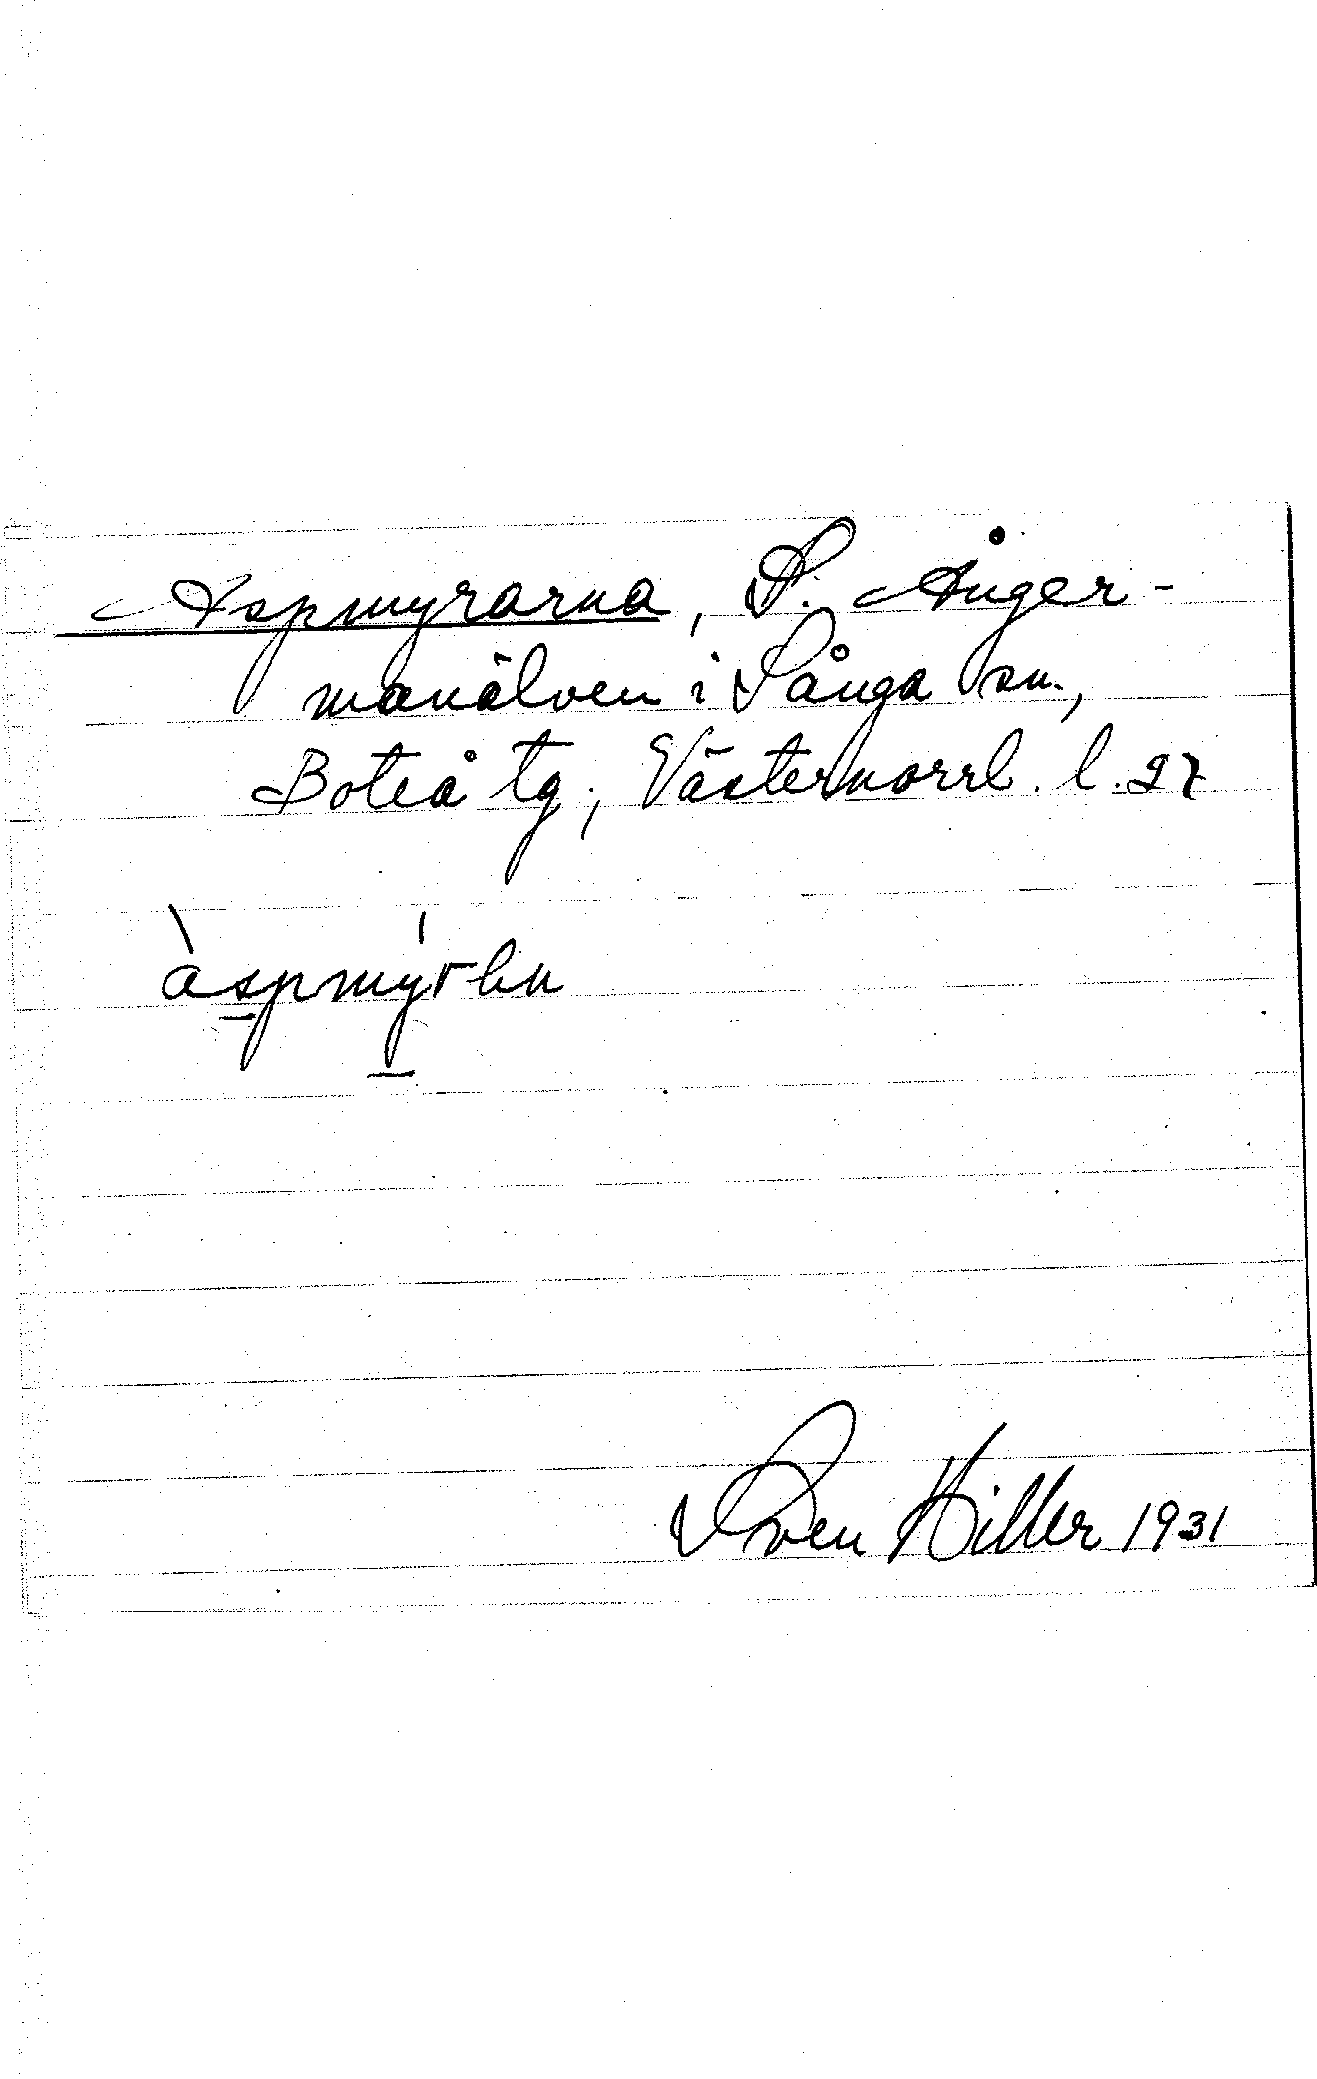 Aspmyrarna, S. Ånger-
manälven i Sånga sn.,
Boteå tg., Västernorrl. l. 27
àspmýrhn
Sven Hiller 1931